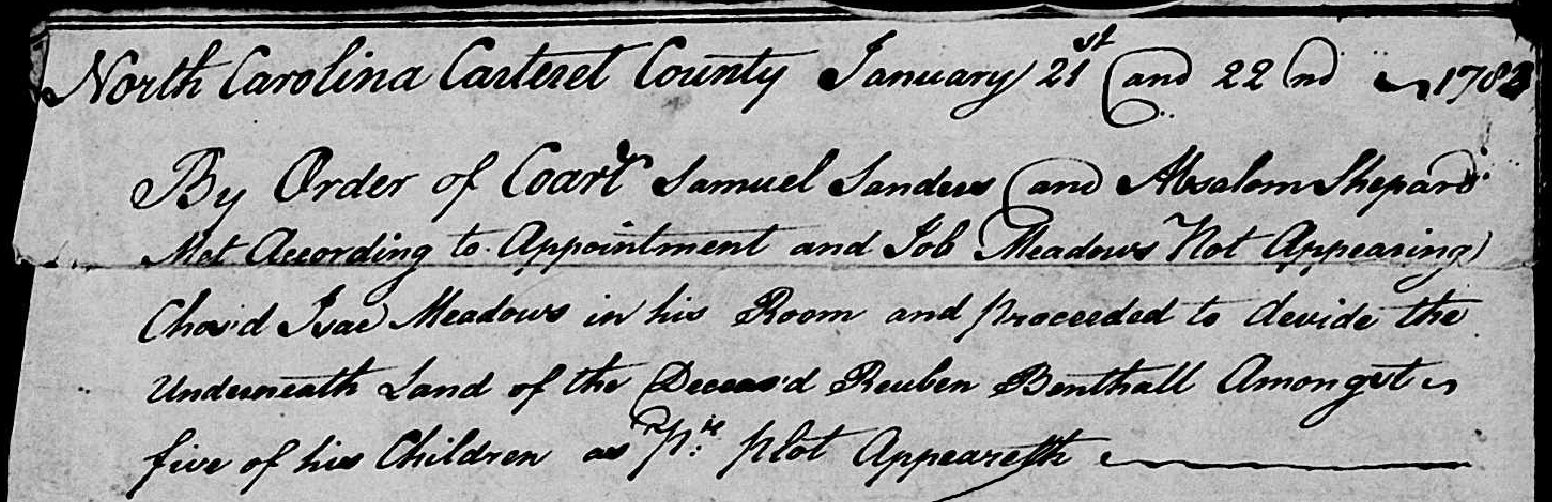 North Carolina Carteret County January 21st and 22nd 178
By Order of Coart Samuel Sanders and Absalom Shepard
Met According to Appointment and Job Meadows Not Appearing
Chos'd Isac Meadows in his Room and proceeded to devide the
Underneath Land of the Deceas'd Reuben Benthall Amongst
five of his Children as plot Appeareth